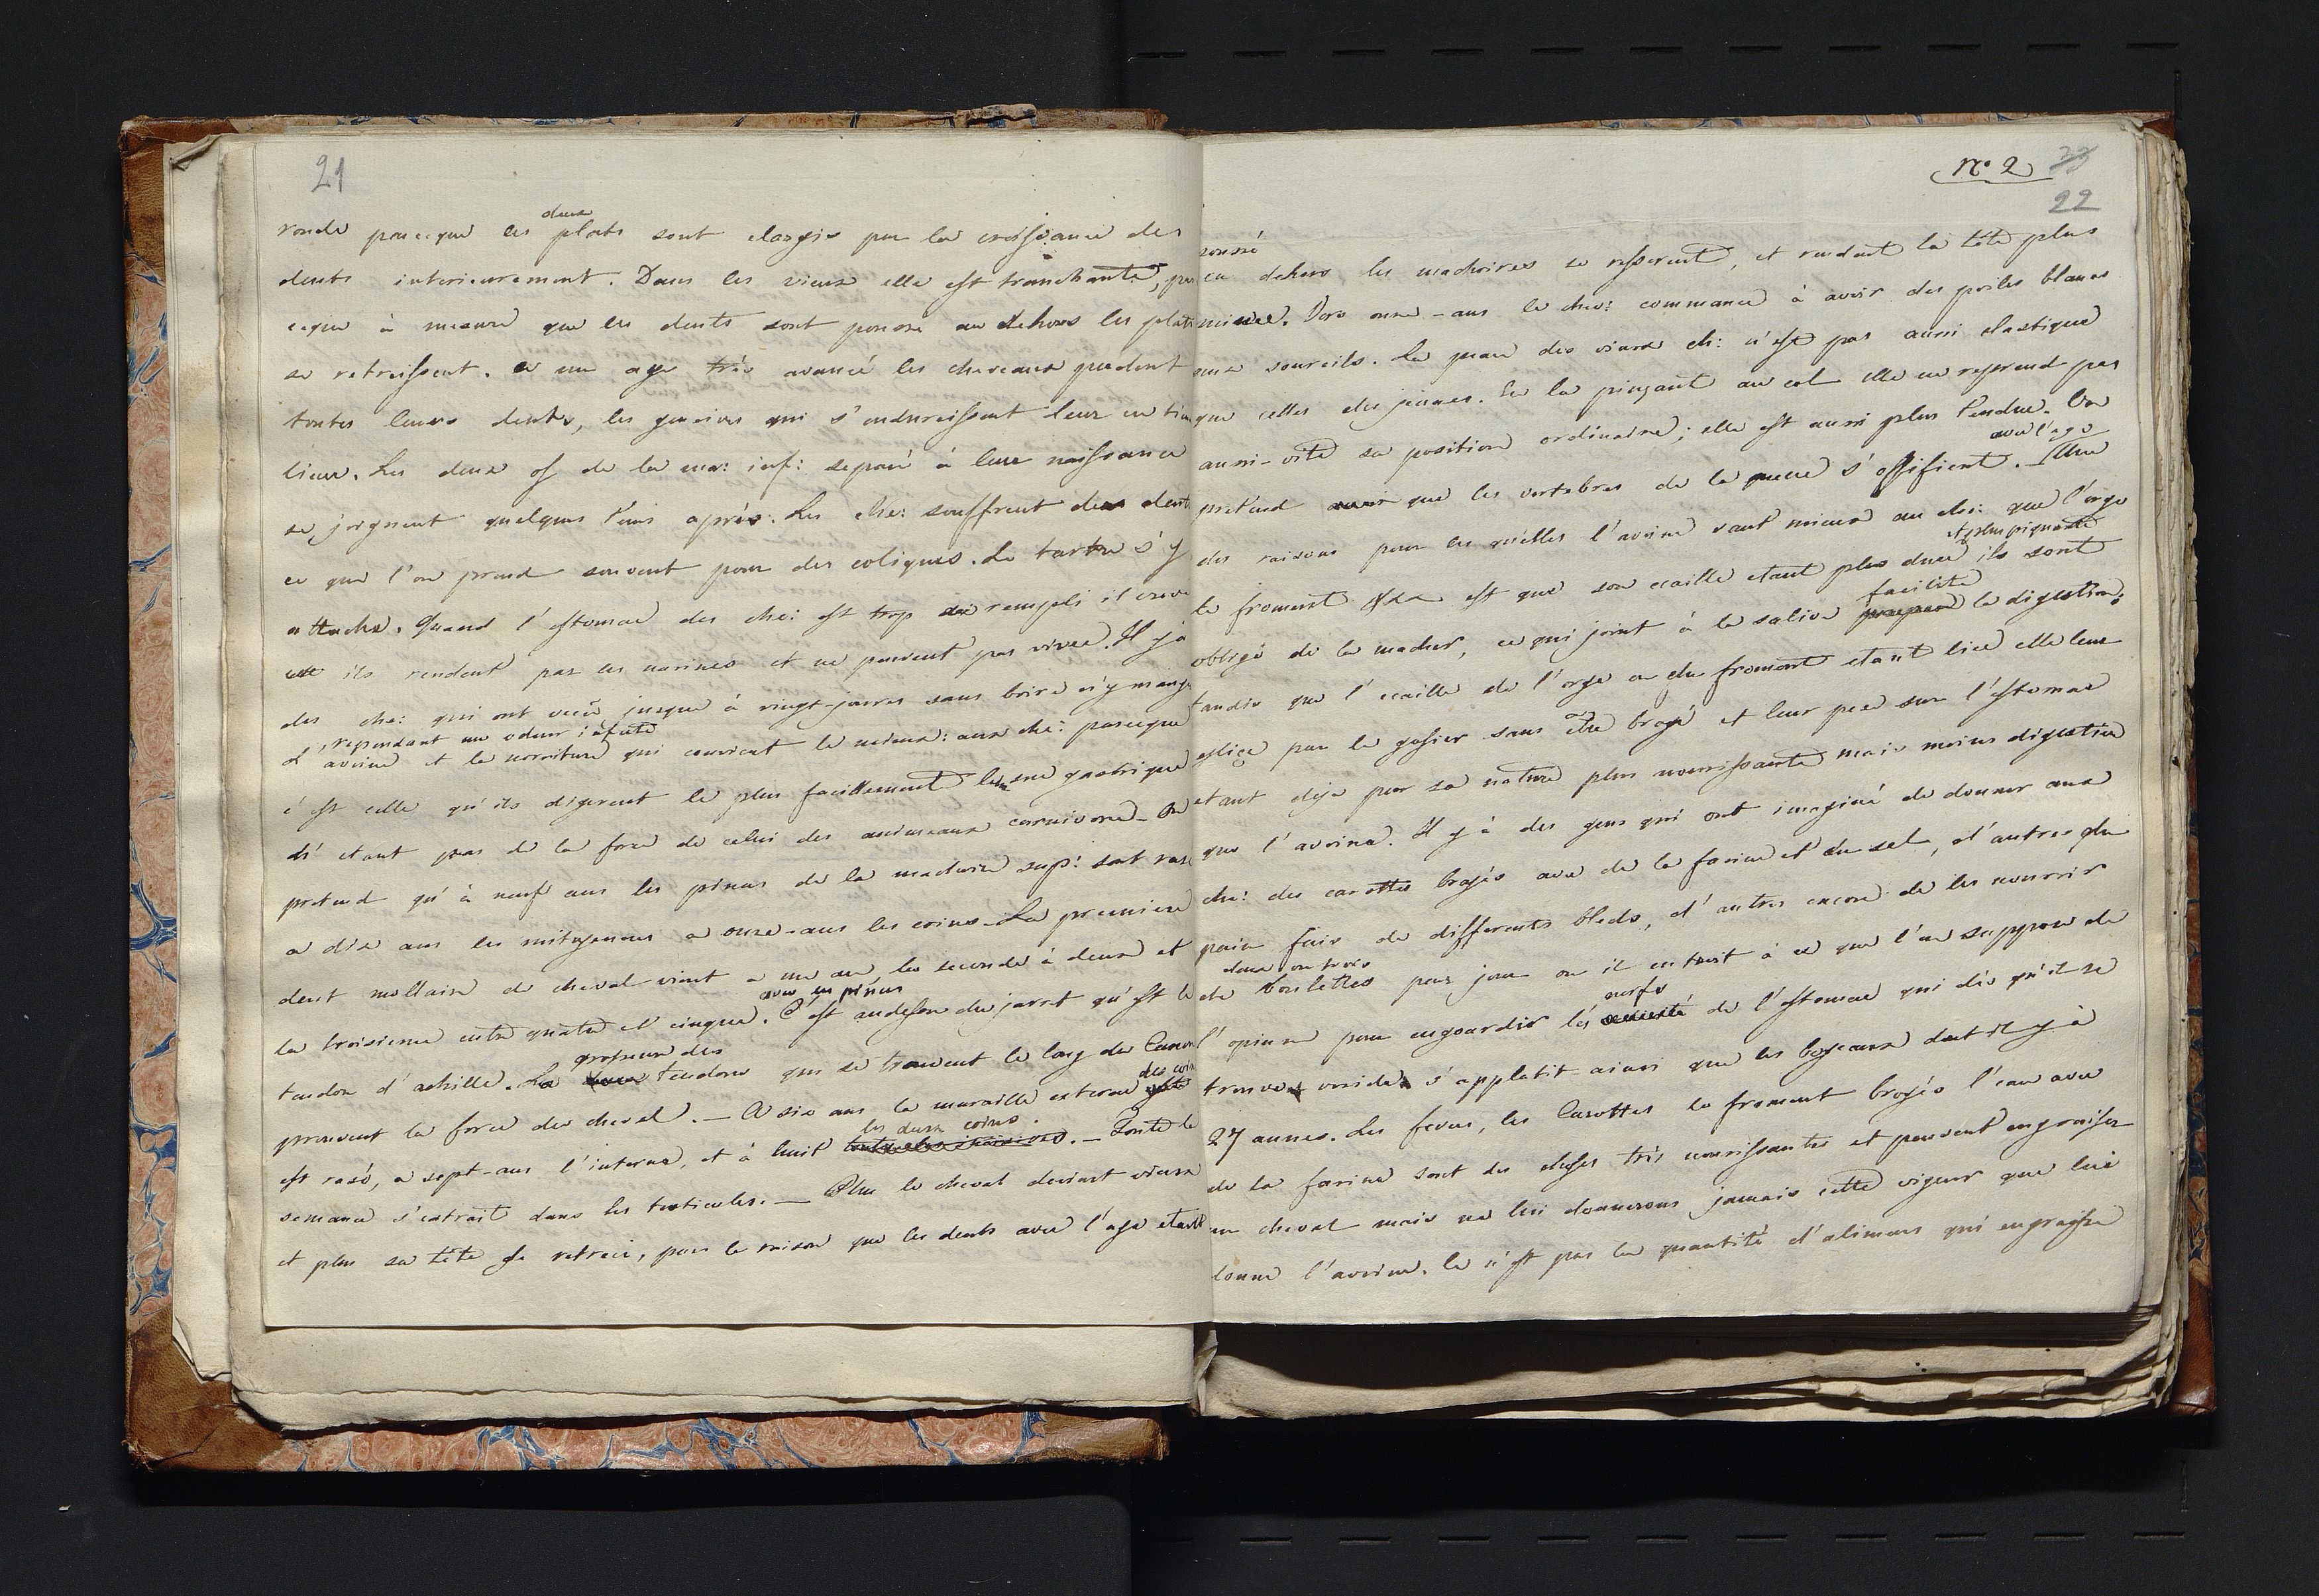 21
ronde parceque les deux plats sont elargis par la croissance des
dents interieurement. Dans les vieux elle est tranchante, par
ceque à mesure que les dents sont poussé au dehors les plats
se retreissent. a un age très avancé les chevaux perdent
toutes leurs dents, les gencives qui s'endureissent leur en tien
lieu. Les deux os de la ma: inf: separé à leur naissance
se joignent quelques tems après. Les che: souffrent des dents
ce que l'on prend souvent pour des coliques. Le tartre s'y
attache. Quand l'estomac des che: est trop rempli il creve
ils rendent par les narines et ne peuvent pas vivre. Il y a
repandant une odeur infecte
des che: qui ont vecû jusque à vingt-jours sans boire n'y manger
L'avoine et la norriture qui convient le mieux: aux che: parceque
c'est celle qu'ils digerent le plus facillement leur suc gastrique
n'etant pas de la force de celui des animeaux carnivore - On
pretend qu'à neuf ans les pinces de la machoire sup: sont rasé
a dix ans les mitoyennes a onze-ans les coins - La premiere
dent mollaire du cheval vient a un an la seconde à deux et
avec les pinces
la troisieme entre quatre et cinque. C'est audessu du jarret qu'est le
tendon d'achille. La grosseur des tendons qui se trouvent le long du Canon
prouvent la force du cheval. - A six ans la muraille externe des coins
est rasé, a sept-ans l'interne, et à huit les deux coins. toutes les incisives. - Toute la
semance s'extrait dans les testicules. - Plus le cheval devient vieux
et plus sa tête se retreci, par la raison que les dents avec l'age etant
No 2 33
22
poussé
en dehors les machoires se resserent, et rendent la tête plus
mince. Vers onze-ans le che: commance à avoir des poiles blancs
aux sourcils. La peau des vieux ch: n'est pas aussi elastique
que celles des jeunes. En la pinçant au col elle ne reprend pas
aussi-vite sa position ordinaire; elle est aussi plus tendue. On
pretend que les vertebres de la queue s'ossifient avec l'age. - Une
des raisons pour les quelles l'avoine vaut mieux au che: que l'orge
le froment est que son ecaille etant plus dure et plus piquante ils sont
obligé de la macher, ce qui joint à la salive facilite la digestion.
tandis que l'ecaille de l'orge ou du froment etant lice elle leur
glice par le gosier sans être broyé et leur pese sur l'estomac
etant deja par sa nature plus nourrissante mais moins digestive
que l'avoine. Il y à des gens qui ont imaginé de donner aux
che: des carottes broyés avec de la farine et du sel, d'autres du
pain fais de differents bleds, d'autres encore de les nourrir
de deux ou trois boulettes par jour ou il entroit à ce que l'on suppose de
l'opium pour engourdir les nerfs de l'estomac qui dès qu'il se
trouve vuide s'applatit ainsi que les boyeaux dont il y à
27 aunes. Les feves, les Carottes le froment broyés l'eau avec
de la farine sont des choses très nourissantes et peuvent engraisser
un cheval mais ne lui donnerons jamais cette vigeur que lui
donne l'avoine. Ce n'est pas la quantité d'alimens qui engraisse